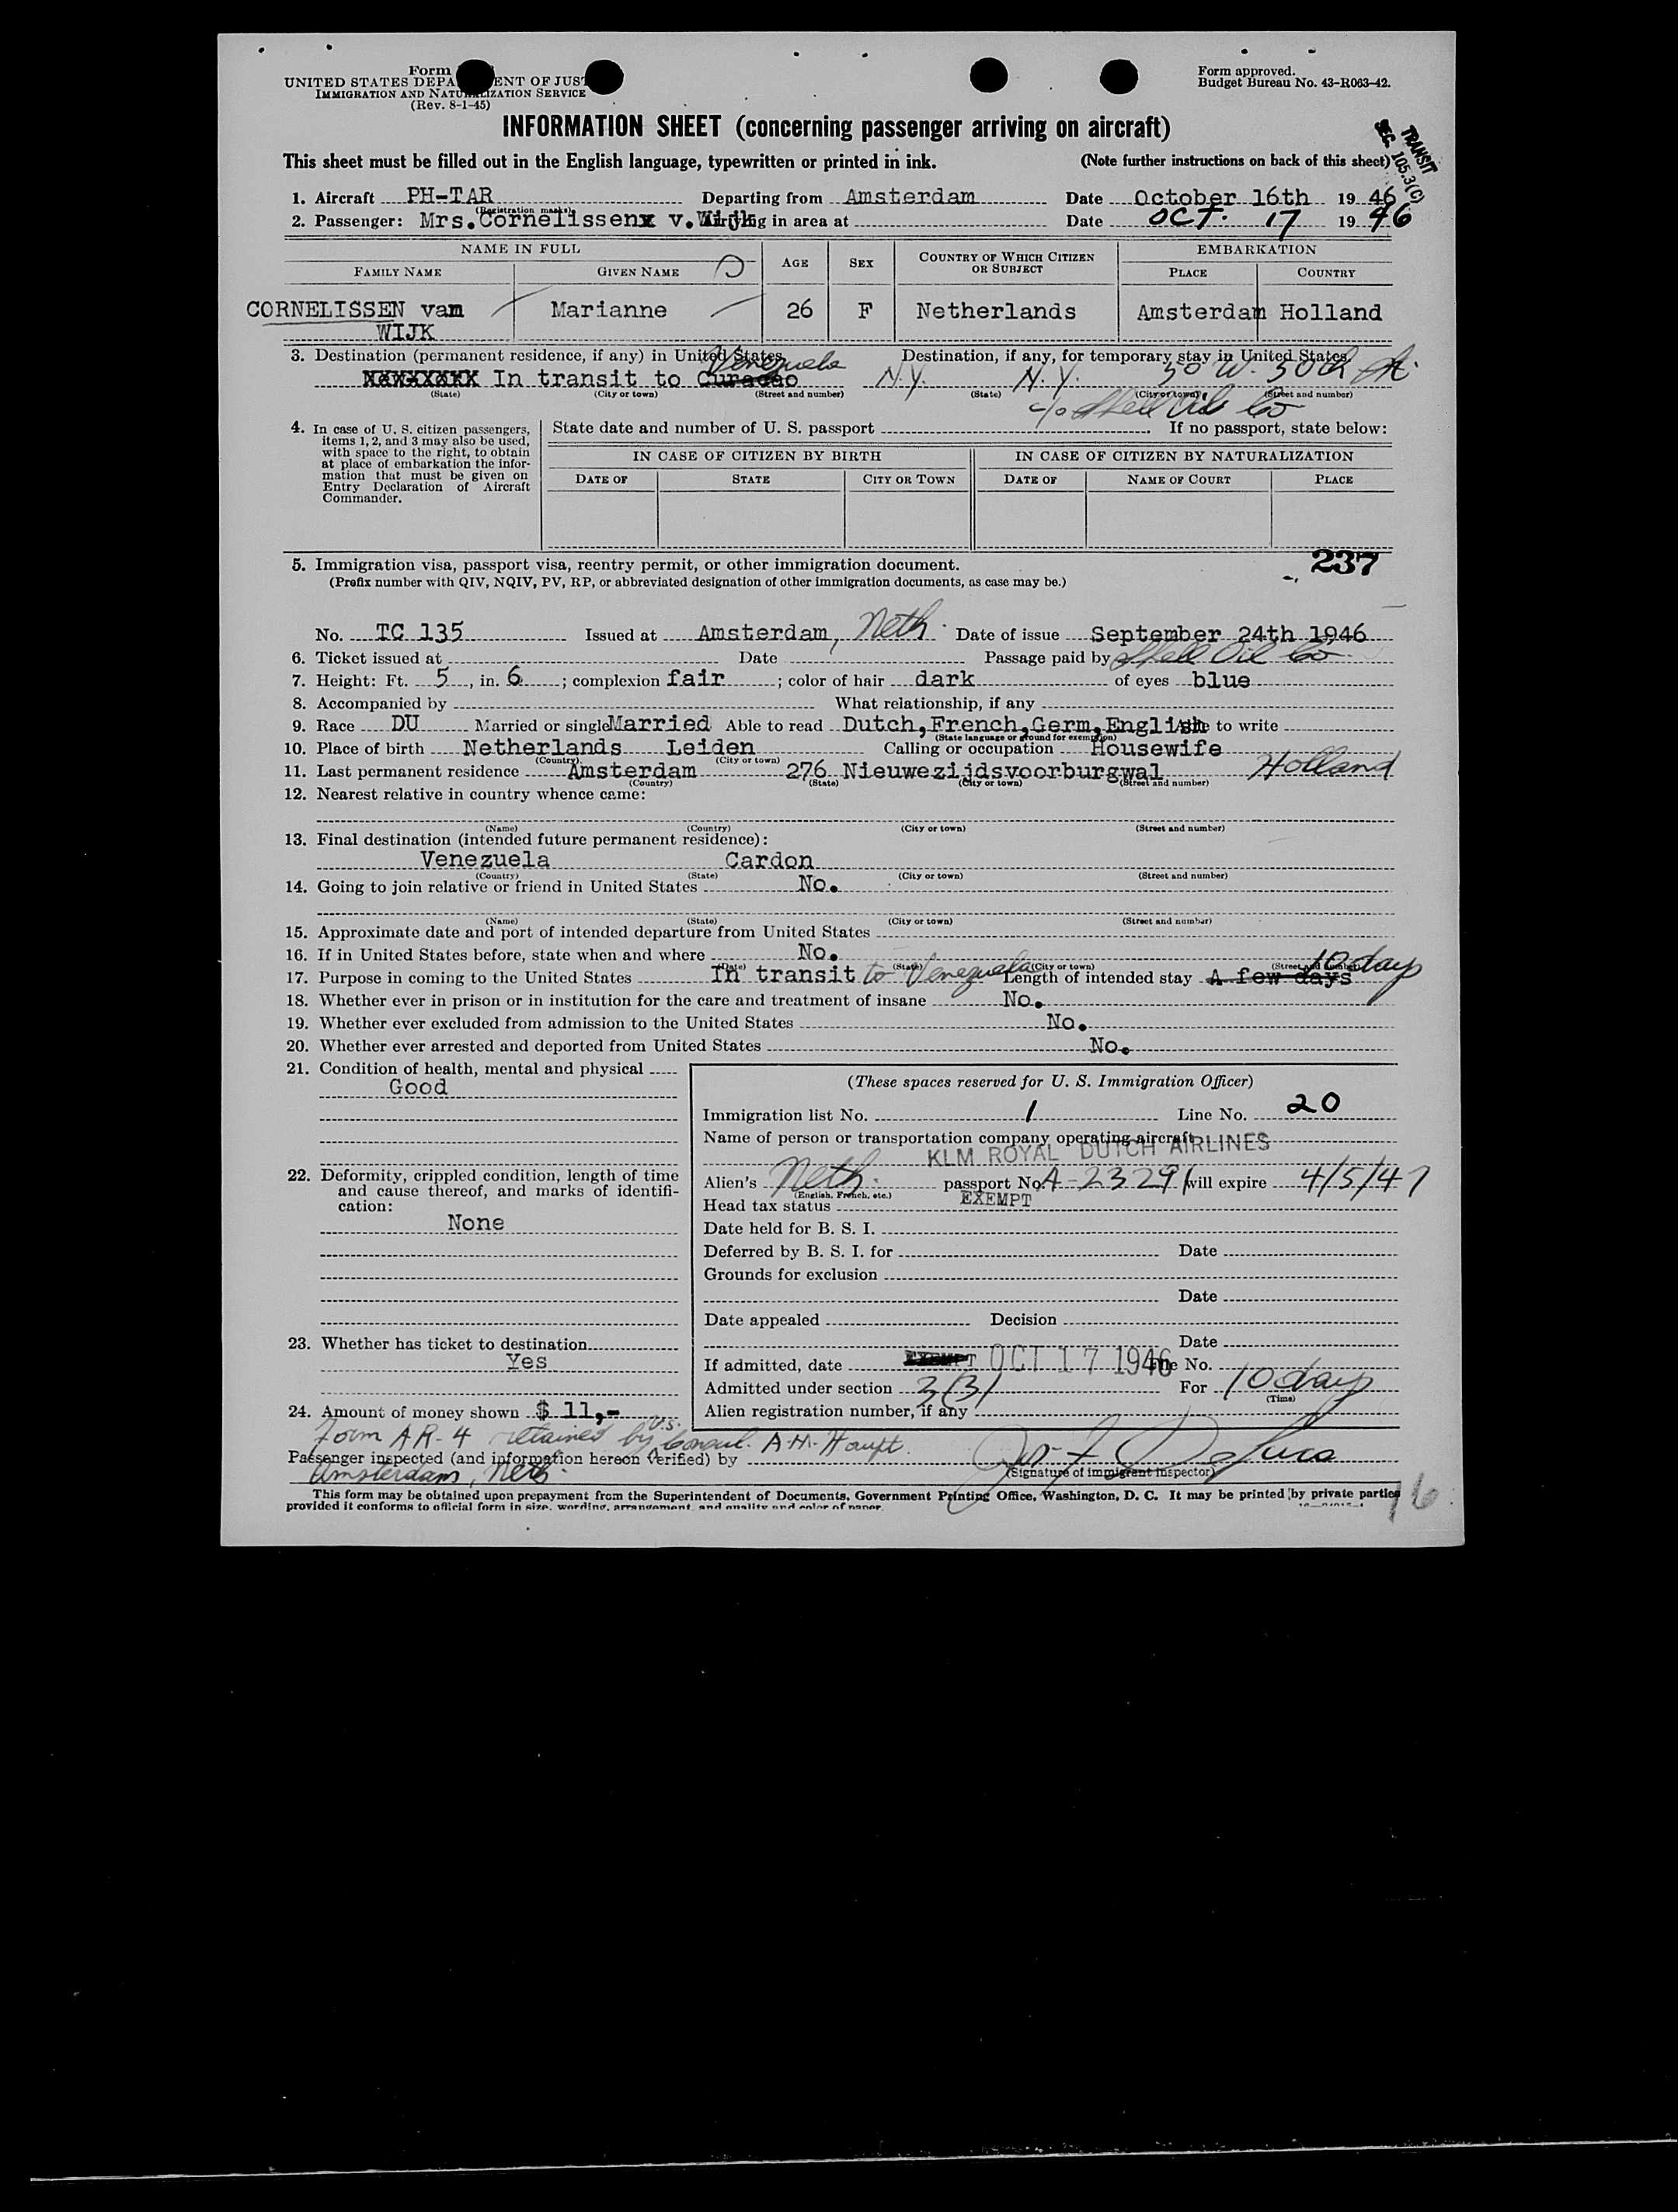 Form
UNITED STATES DEPA ENT OF JUST
IMMIGRATION AND NATURALIZATION SERVICE
(Rev. 8-1-45)
Form approved.
Budget Bureau No. 43-R063-42.
INFORMATION SHEET (concerning passenger arriving on aircraft)
TRANSIT
SEC. 105.3(C)
This sheet must be filled out in the English language, typewritten or printed in ink. (Note further instructions on back of this sheet)
1. Aircraft PH-TAR Departing from Amsterdam Date October 16th 1946
(Registration marks)
2. Passenger: Mrs. Cornelissenx v. Wijk Arriving in area at Date OCT. 17 1946
NAME IN FULL AGE SEX COUNTRY OF WHICH CITIZEN OR SUBJECT EMBARKATION
FAMILY NAME GIVEN NAME PLACE COUNTRY
CORNELISSEN van WIJK Marianne 26 F Netherlands Amsterdam Holland
3. Destination (permanent residence, if any) in United States Destination, if any, for temporary stay in United States
Venezuela
In transit to Curacao N.Y. N.Y. 50 W. 50th St.
(State) (City or town) (Street and number) (State) (City or town) (Street and number)
c/o Shell Oil Co
4. In case of U. S. citizen passengers, items 1, 2, and 3 may also be used, with space to the right, to obtain at place of embarkation the information that must be given on Entry Declaration of Aircraft Commander.
State date and number of U. S. passport If no passport, state below:
IN CASE OF CITIZEN BY BIRTH IN CASE OF CITIZEN BY NATURALIZATION
DATE OF STATE CITY OR TOWN DATE OF NAME OF COURT PLACE
237
5. Immigration visa, passport visa, reentry permit, or other immigration document.
(Prefix number with QIV, NQIV, PV, RP, or abbreviated designation of other immigration documents, as case may be.)
No. TC 135 Issued at Amsterdam, Neth. Date of issue September 24th 1946
6. Ticket issued at Date Passage paid by Shell Oil Co
7. Height: Ft. 5, in. 6; complexion fair; color of hair dark of eyes blue
8. Accompanied by What relationship, if any
9. Race DU Married or single Married Able to read Dutch, French, Germ, English Able to write
(State language or ground for exemption)
10. Place of birth Netherlands Leiden Calling or occupation Housewife
(Country) (City or town)
11. Last permanent residence Amsterdam 276 Nieuwezijdsvoorburgwal Holland
(Country) (State) (City or town) (Street and number)
12. Nearest relative in country whence came:
(Name) (Country) (City or town) (Street and number)
13. Final destination (intended future permanent residence):
Venezuela Cardon
(Country) (State) (City or town) (Street and number)
14. Going to join relative or friend in United States No.
(Name) (State) (City or town) (Street and number)
15. Approximate date and port of intended departure from United States
16. If in United States before, state when and where No.
(Date) (State) (City or town) (Street and number)
17. Purpose in coming to the United States In transit to Venezuela Length of intended stay A few days 10 days
18. Whether ever in prison or in institution for the care and treatment of insane No.
19. Whether ever excluded from admission to the United States No.
20. Whether ever arrested and deported from United States No.
21. Condition of health, mental and physical
Good
22. Deformity, crippled condition, length of time and cause thereof, and marks of identification:
None
23. Whether has ticket to destination
Yes
24. Amount of money shown $ 11,-
(These spaces reserved for U. S. Immigration Officer)
Immigration list No. 1 Line No. 20
Name of person or transportation company operating aircraft
KLM ROYAL DUTCH AIRLINES
Alien's Neth. passport No. A-23291 will expire 4/5/47
(English, French, etc.)
Head tax status EXEMPT
Date held for B. S. I.
Deferred by B. S. I. for Date
Grounds for exclusion
Date
Date appealed Decision
Date
If admitted, date EXEMPT OCT 17 1946 File No.
Admitted under section 3(3) For 10 days
(Time)
Alien registration number, if any
Form AR-4 retained by U.S. Consul. A.H. Haupt.
Amsterdam, Neth.
Passenger inspected (and information hereon verified) by
(Signature of immigrant inspector)
This form may be obtained upon prepayment from the Superintendent of Documents, Government Printing Office, Washington, D. C. It may be printed by private parties
provided it conforms to official form in size, wording, arrangement, and quality and color of paper.
16